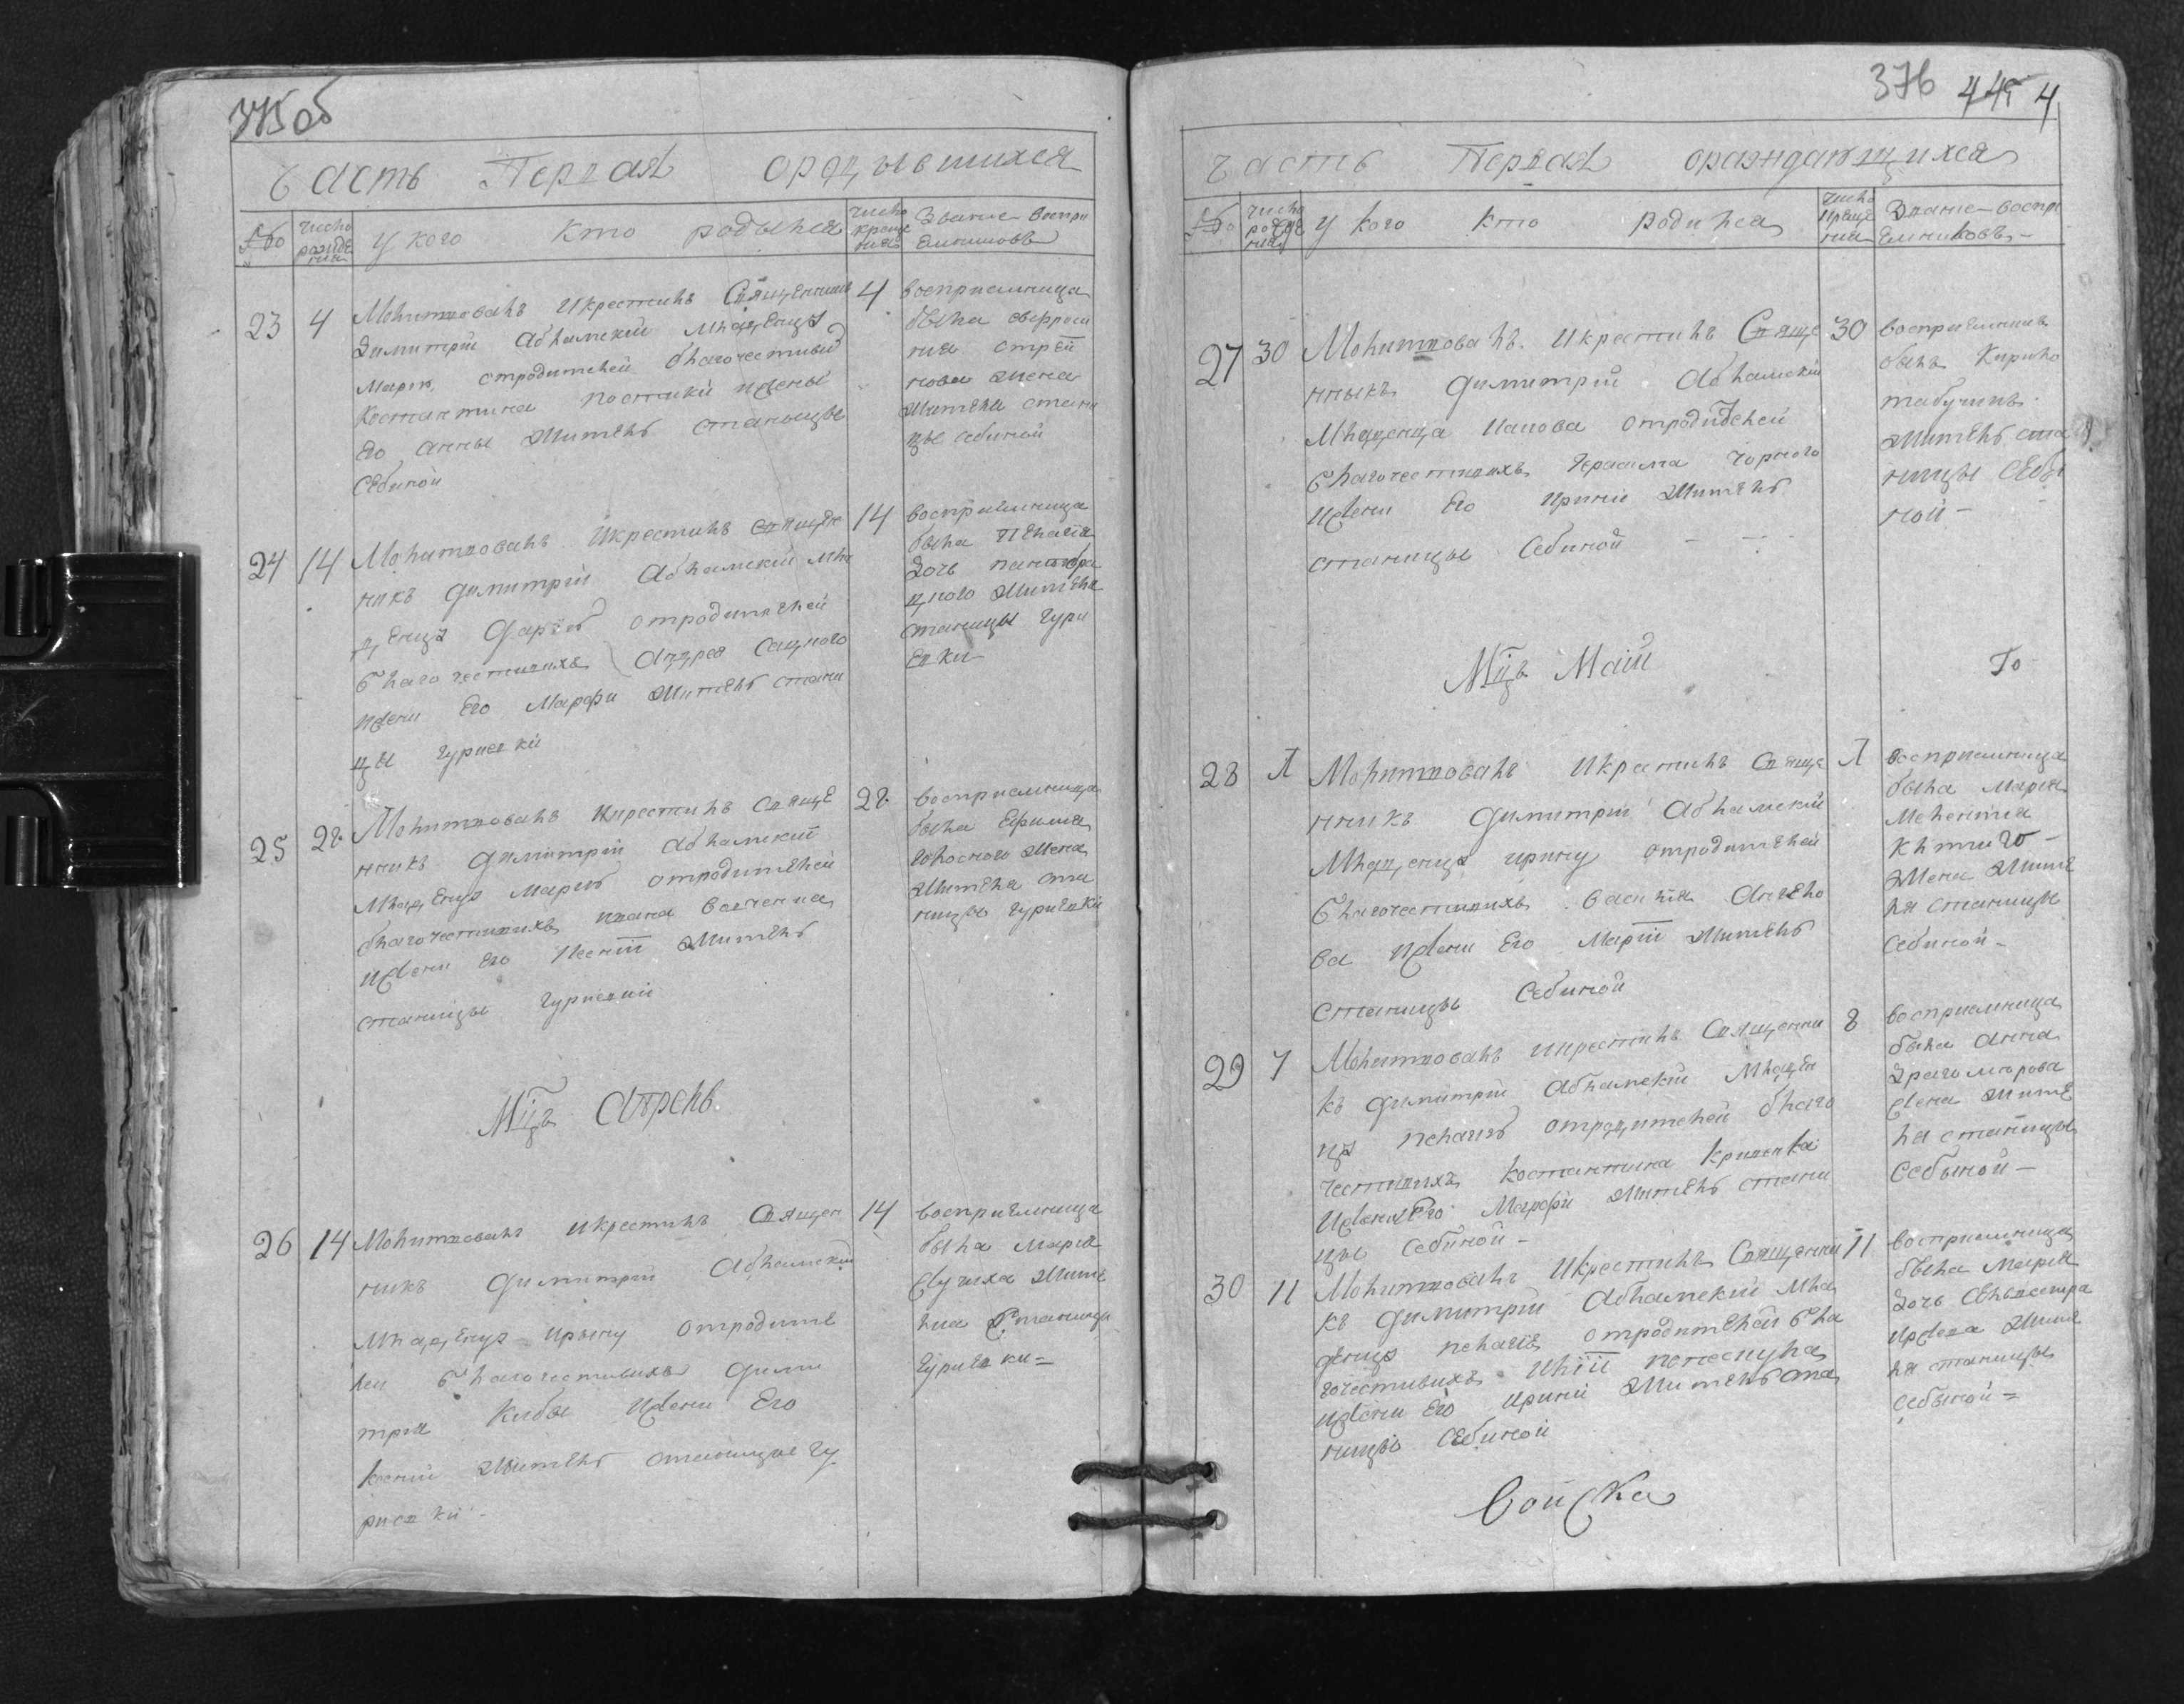 375 об
Часть Первая ородывшихся
№ число рожде ния у кого кто родылся число креще ния Звание воспри емниковъ
23 4 Молитвовалъ икрестилъ Священникъ 4
Димитрій Абламскій младенца
Марію отродителей благочестивы
Костантина Постики ижены
его Анны жителъ станыцы
Себиной
восприемница
была Евфроси
ния
нова жена
жителя стани
цы Себиной
24 14 Молитвовалъ икрестилъ священ 14
никъ Димитрій Абламскій мла
денца Дарію отродителей
благочестивихъ Андрея Сацного
ижени Его Марфи жителъ стани
цы Гуриевки
восприемница
была Пелагія
дочь
дного жителя
станицы Гури
евки
25 28 Молитвовалъ икрестилъ Свяще 28
нникъ Димитрій Абламскій
младенца Марію отродителей
благочестивихъ Ивана
ижени Его Ксеніи жителъ
станицы Гуриевки
восприемница
была Ефимия
Голосного жена
жителя ста
ницы Гуриевки
Мцъ Апрель
26 14 Молитвовалъ икрестилъ Священ 14
никъ Димитрій Абламскій
младенца Ирыну отродите
лей благочестивихъ Дими
трия Кибы ижени Его
Ксении жителъ станицы Гу
риевки
восприемница
была Мария
жите
лка станицы
Гуриевки
376 445 4
Часть Первая ораждающихся
№ число рожде ния у кого кто родился число креще ния Звание воспри емниковъ
27 30 Молитвовалъ икрестилъ Свяще 30
нныкъ Димитрій Абламскій
младенца Иакова отродителей
благочестивихъ Герасима Чорного
ижени Его Ирини жителъ
станицы Себиной
восприемникъ
былъ Кирило
Табунчикъ
жителъ ста
ницы Себи
ной
Мцъ Маій
То
28 Л Молитвовалъ икрестилъ Свяще Л
нникъ Димитрій Абламскій
младенца Ирину отродителей
благочестивихъ Василія Ангело
ва ижени Его Маріи жителъ
станицы Себиной
восприемница
была Мария
Мелентия
жена жите
ля станицы
Себиной
29 7 Молитвовалъ икрестилъ Священни 8
къ Димитрій Абламскій младен
ца Пелагію отродителей благо
честивихъ Костантина Кривенка
ижени Его Марфи жителъ стани
цы Себиной
восприемница
была Анна
Драгомирова
жена жите
ля станицы
Себыной
30 11 Молитвовалъ икрестилъ Священни 11
къ Димитрій Абламскій мла
денца Пелагію отродителей бла
гочестивихъ Иліи
ижени Его Ирини жителъ ста
ницы Себиной
восприемница
была Мария
дочь Селвестра
жите
ля станицы
Себыной
Войска